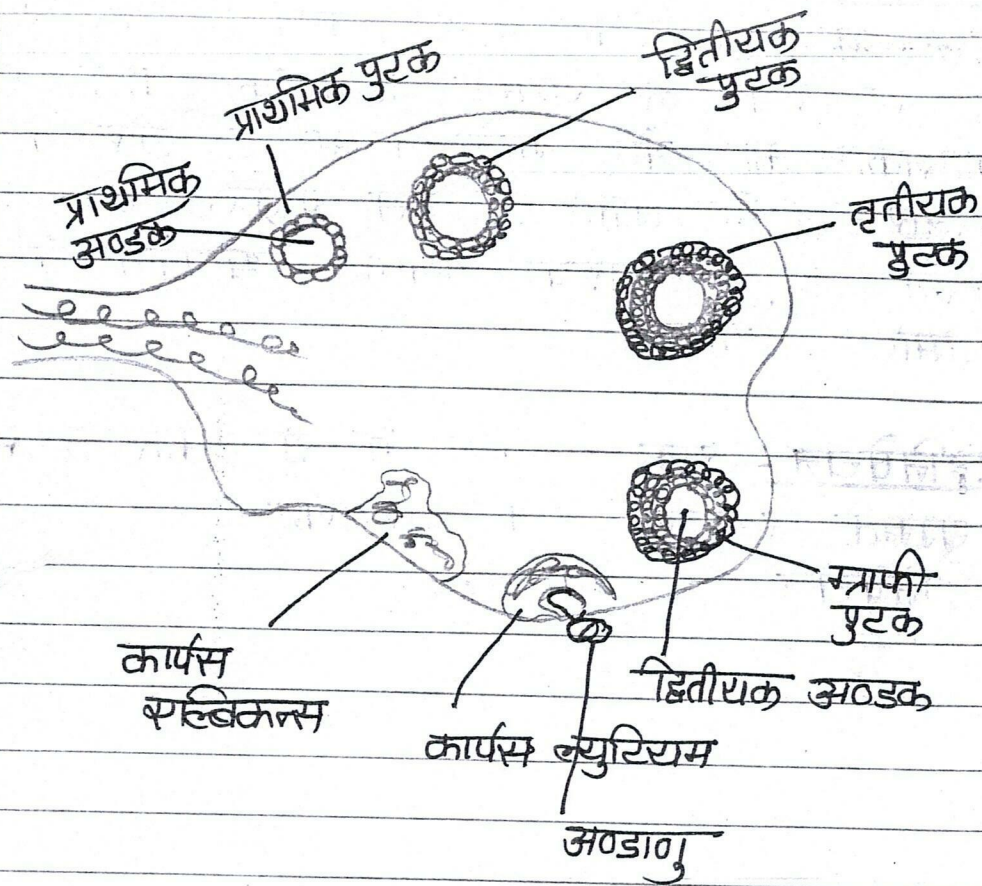 प्राथमिक पुटक
द्वितीयक
पुटक
प्राथमिक
अण्डक
तृतीयक
पुटक
ग्राफी
पुटक
द्वितीयक अण्डक
कार्पस
एल्बिकन्स
कार्पस ल्युटियम
अण्डाणु